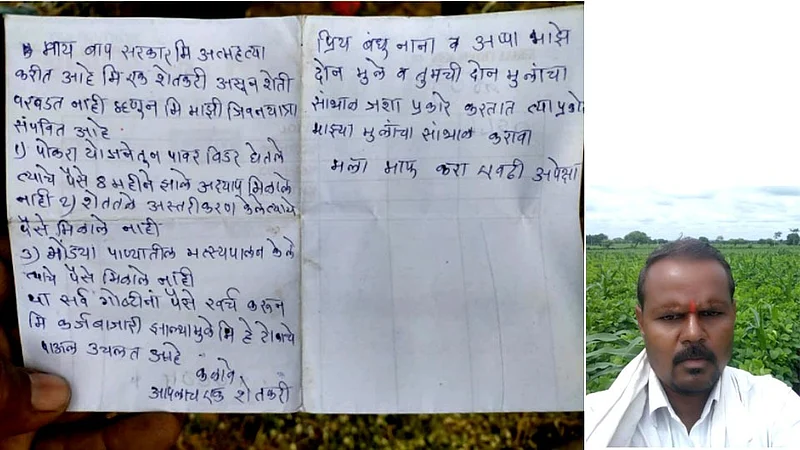 माय बाप सरकार मि आत्महत्या
करीत आहे मि एक शेतकरी असुन शेती
परवडत नाही म्हणुन मि माझी जिवनयात्रा
संपवित आहे
1) पोकरा योजनेतून पावर विडर घेतले
त्याचे पैसे 8 महीने झाले अद्याप मिळाले
नाही 2) शेततळे अस्तरीकरण केले त्याचे
पैसे मिळाले नाही
3) गोड्या पाण्यातील मत्स्यपालन केले
त्याचे पैसे मिळाले नाही
या सर्व गोष्टींना पैसे खर्च करून
मि कर्जबाजारी झाल्यामुळे मि हे टोकाचे
पाऊल उचलत आहे
कळावे
आपलाच एक शेतकरी
प्रिय बंधु नाना व अप्पा माझे
दोन मुले व तुमची दोन मुलांचा
सांभाळ जशा प्रकारे करतात त्या प्रकारे
माझ्या मुलांचा सांभाळ करावा
मला माफ करा एवढी अपेक्षा